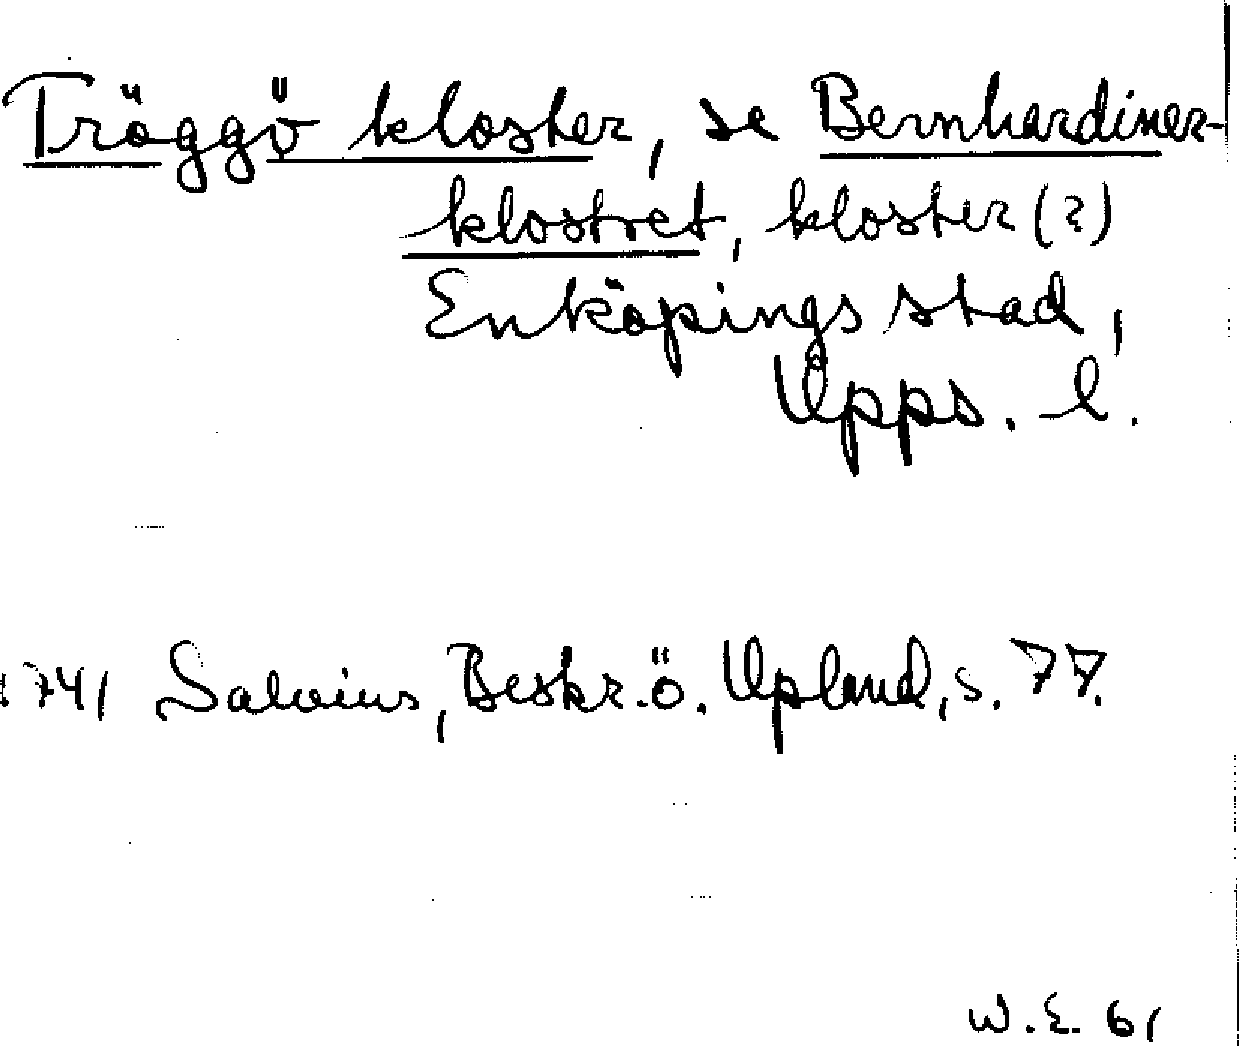 Tröggö kloster, se Bernhardiner-
klostret, kloster (?)
Enköpings stad,
Upps. l.
1741 Salvius, Beskr. ö. Upland, s. 77.
W.E. 61